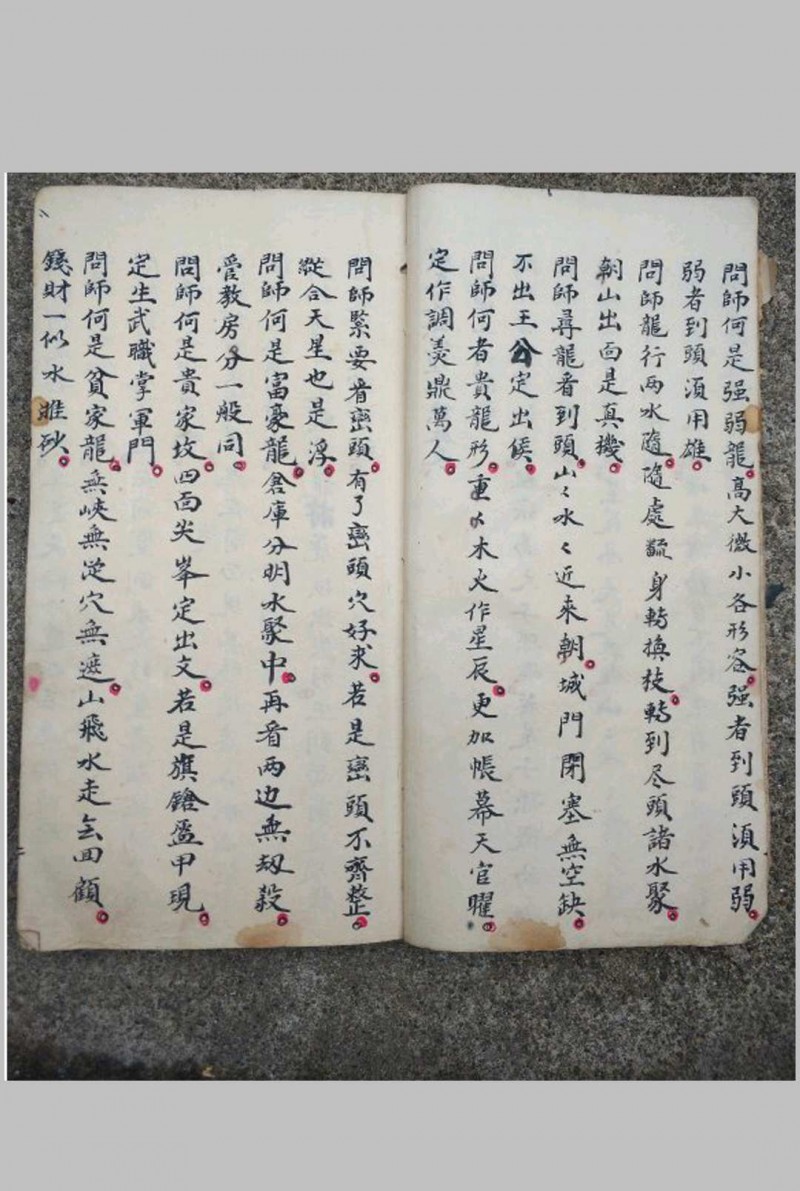 問師何是强弱龍高大微小各形容强者到頭須用弱
弱者到頭須用雄
問師龍行两水隨隨處翻身轉换枝轉到尽頭諸水聚
朝山出面是真機
問師尋龍看到頭山〻水〻近来朝城門閉塞無空缺
不出王公定出侯
問師何者貴龍形重〻木火作星辰更加帳幕天官曜
定作調羹鼎萬人
問師緊要看巒頭有了巒頭穴好求若是巒頭不齊整
縱合天星也是浮
問師何是富豪龍倉庫分明水聚中再看两边無刼殺
管教房分一般同
問師何是貴家坟四面尖峯定出文若是旗鎗盔甲現
定生武職掌軍門
問師何是貧家龍無峽無從穴無遮山飛水走無回顧
錢財一似水推砂